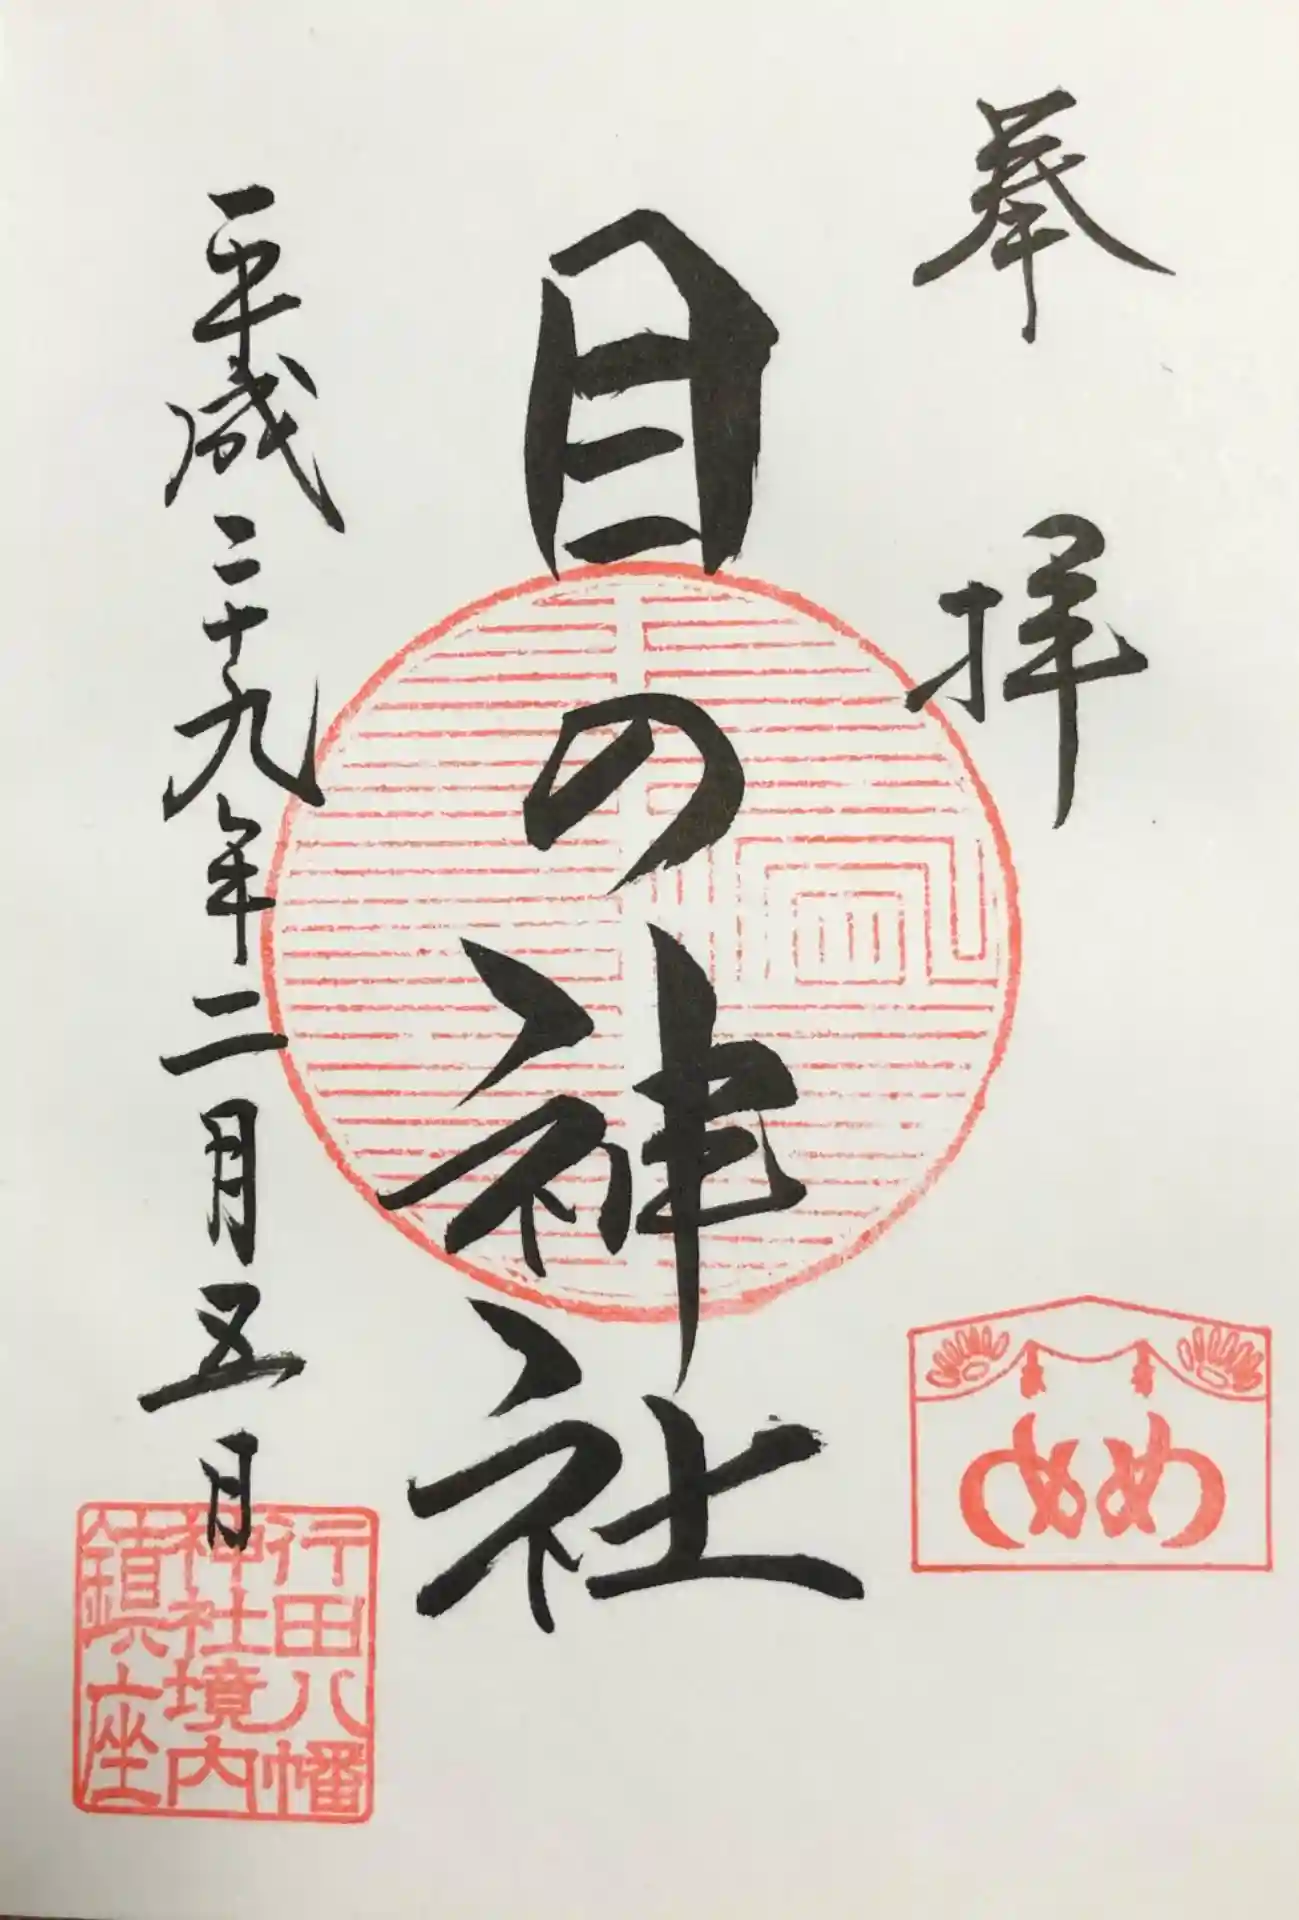 奉拝
めめ
目の神社
平成二十九年二月五日
行田八幡
神社境内
鎮座